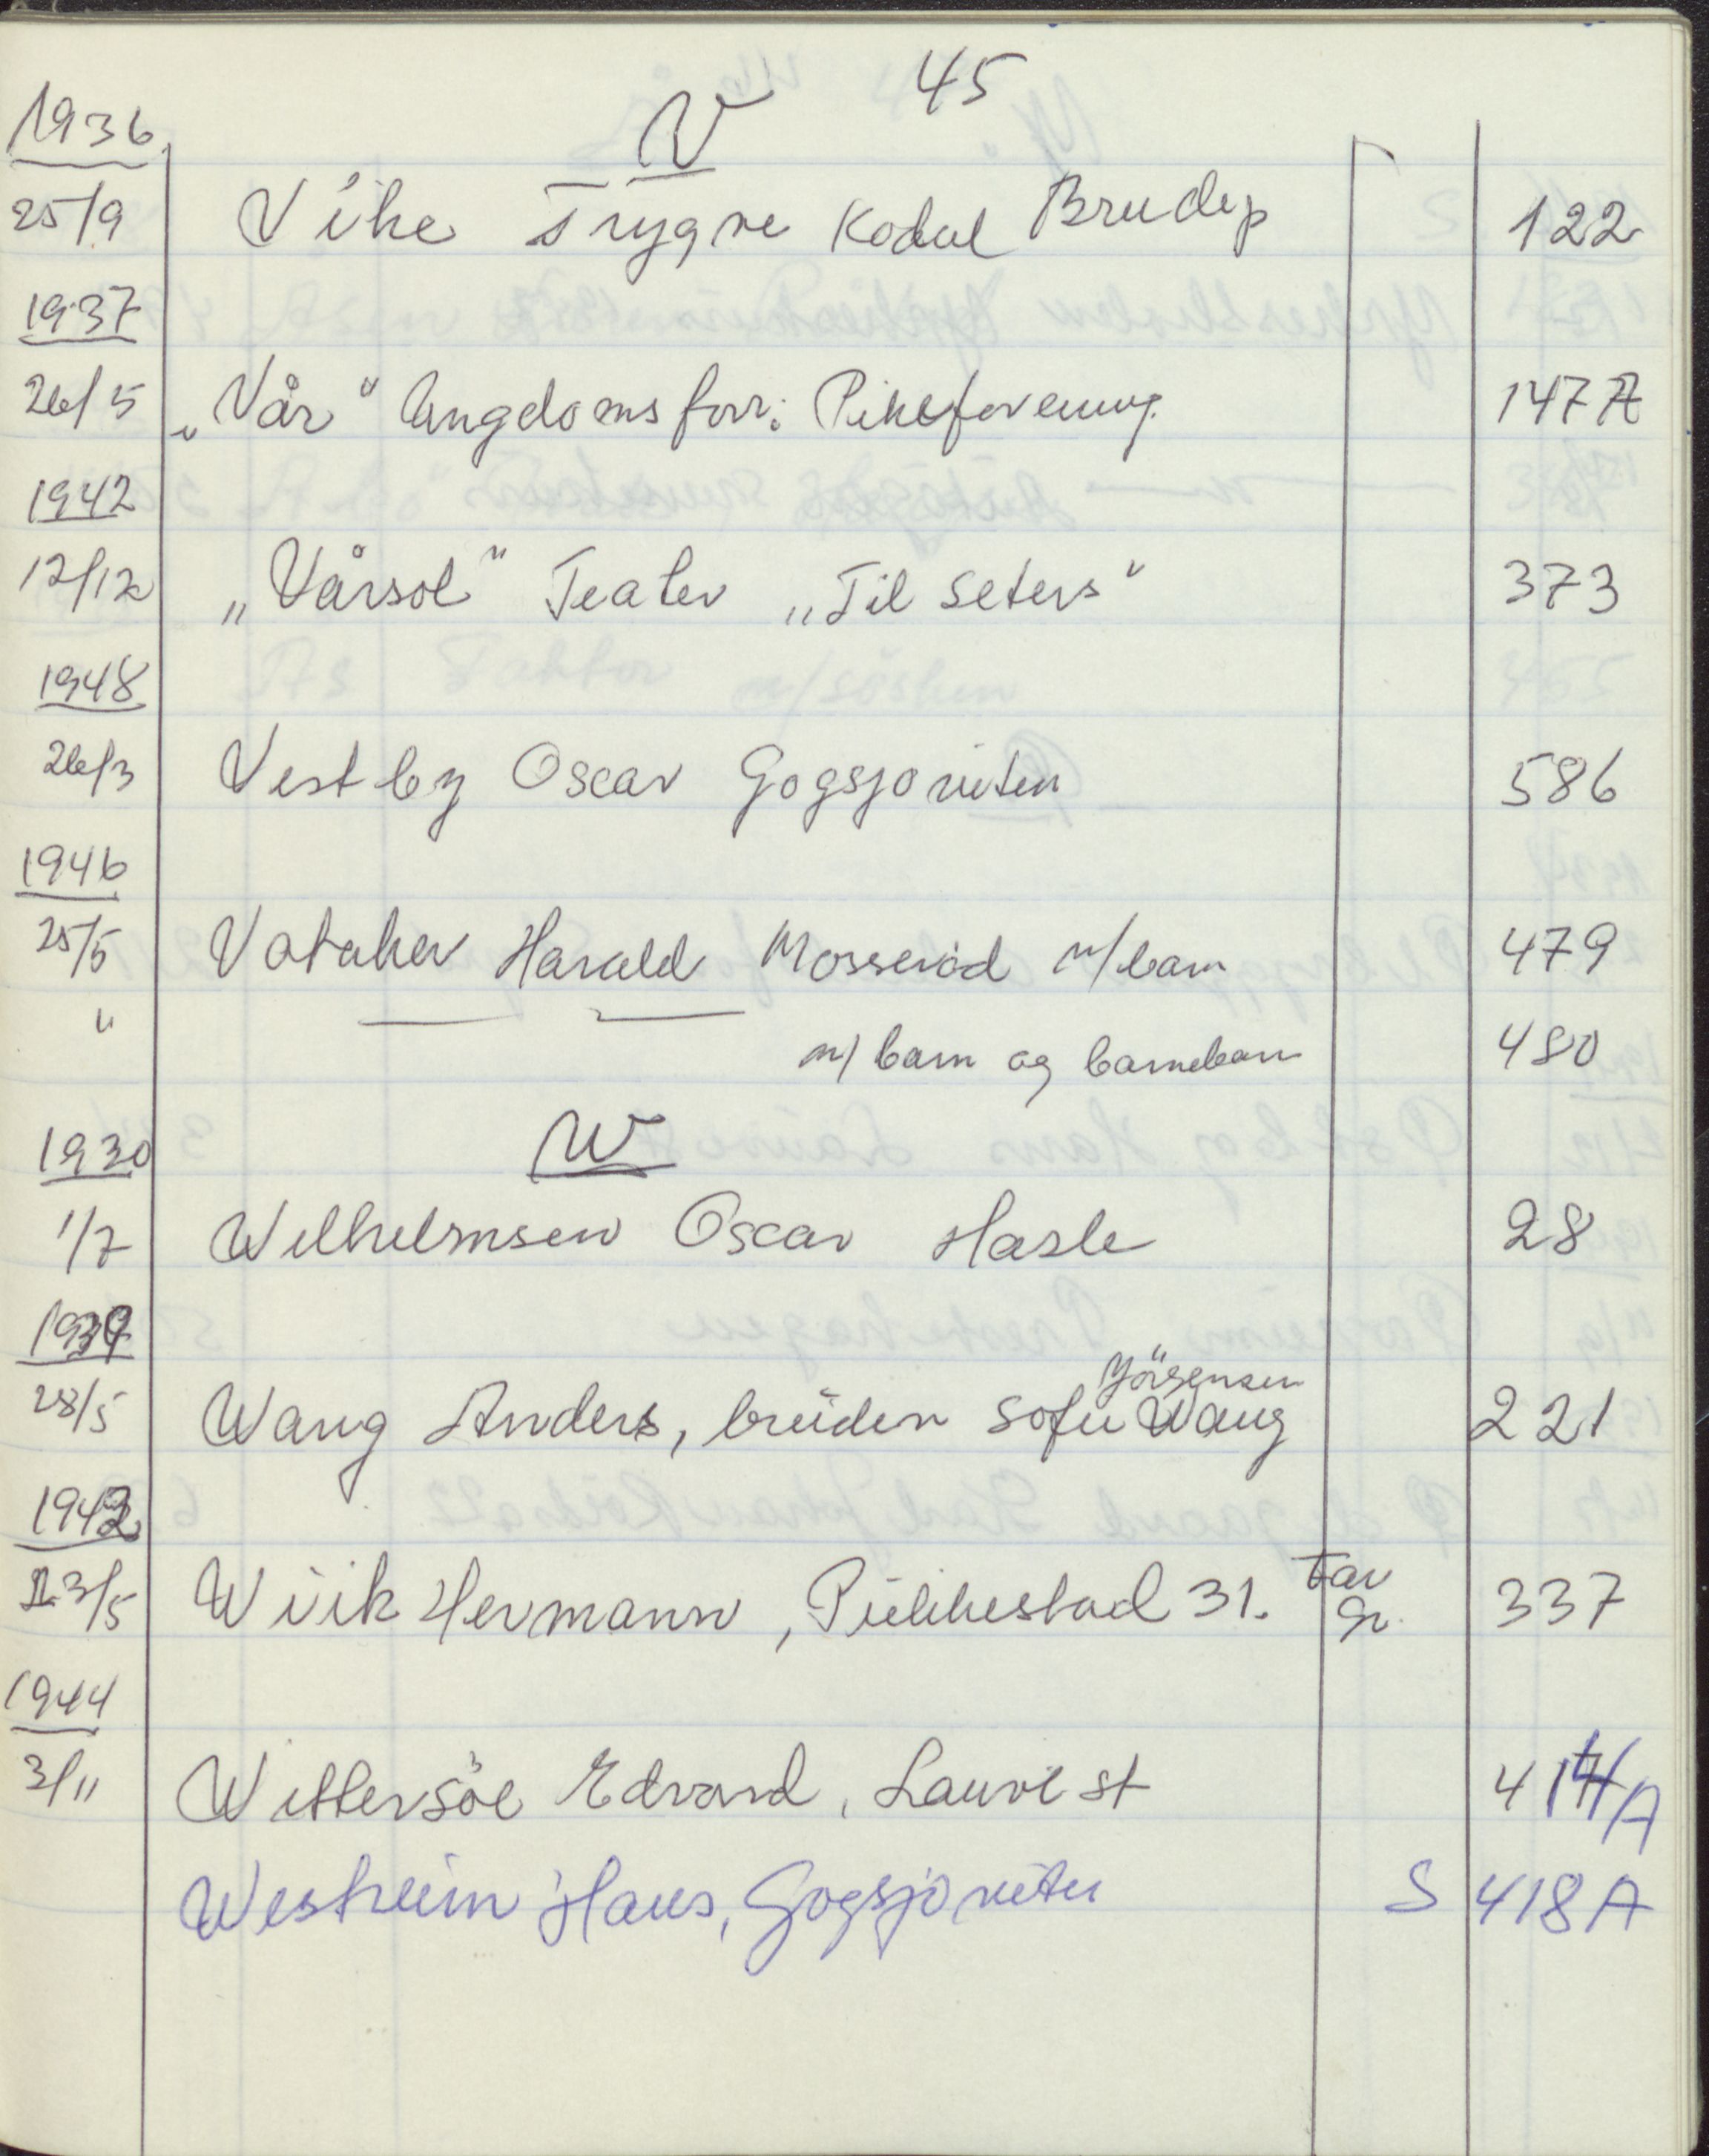 45
1936 V
25/9 Vike Trygve Kodal Brudep 122
1937
26/5 „Vår“ Ungdomsforr: Pikeforening. 147A
1942
12/12 „Vårsol“ Teater „Til seters“ 373
1948
26/3 Vestby Oscar Gogsjöveien 586
1946
25/5 Vataker Harald Mosseröd m/barn 479
" m/ barn og barnebarn 480
1930 W
1/7 Wilhelmsen Oscar Hasle 28
1939
Jörgensen
28/5 Wang Anders, bruden Sofie Wang 221
1942
23/5 Wiik Hermann, Pukkestad 31. Far Sr. 337
1944
3/11 Wittersöe Edvard, Lauvest 417/A
Westheim Hans, Gogsjöveien S 418A